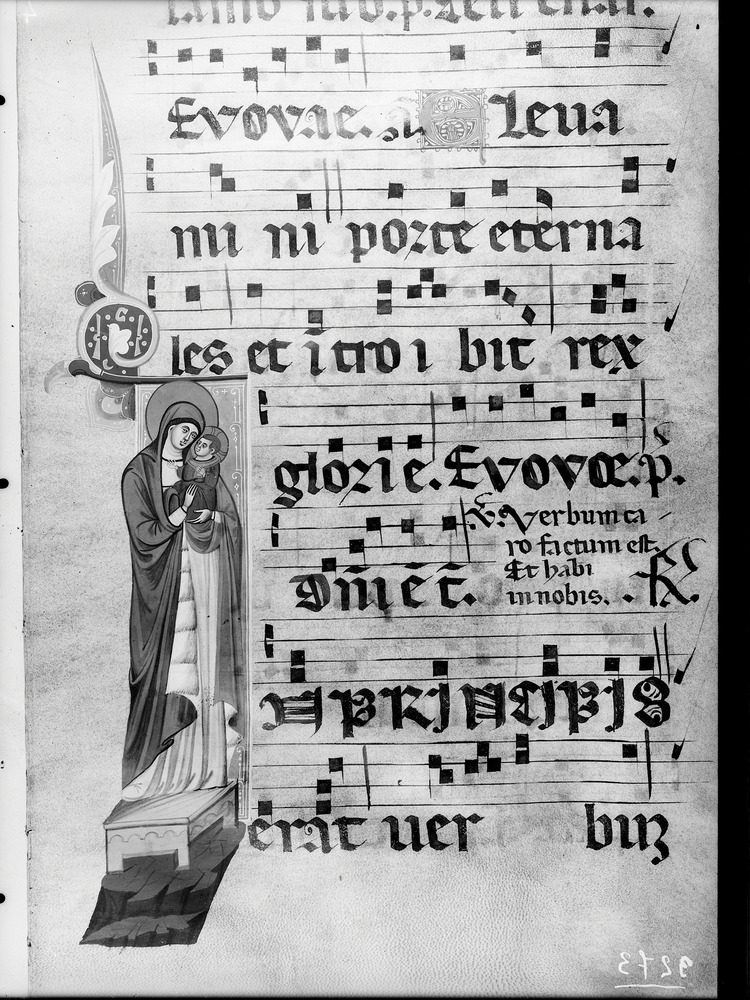 Evovae. a. E Leua
mi ni porte eterna
les et ītro i bit rex
glorie. Evovae. p.
Dn̄i ē t̄. V. Verbum ca
ro factum est.
Et habi
in nobis. R
IN PRINCIPIO
erat uer buz
9273